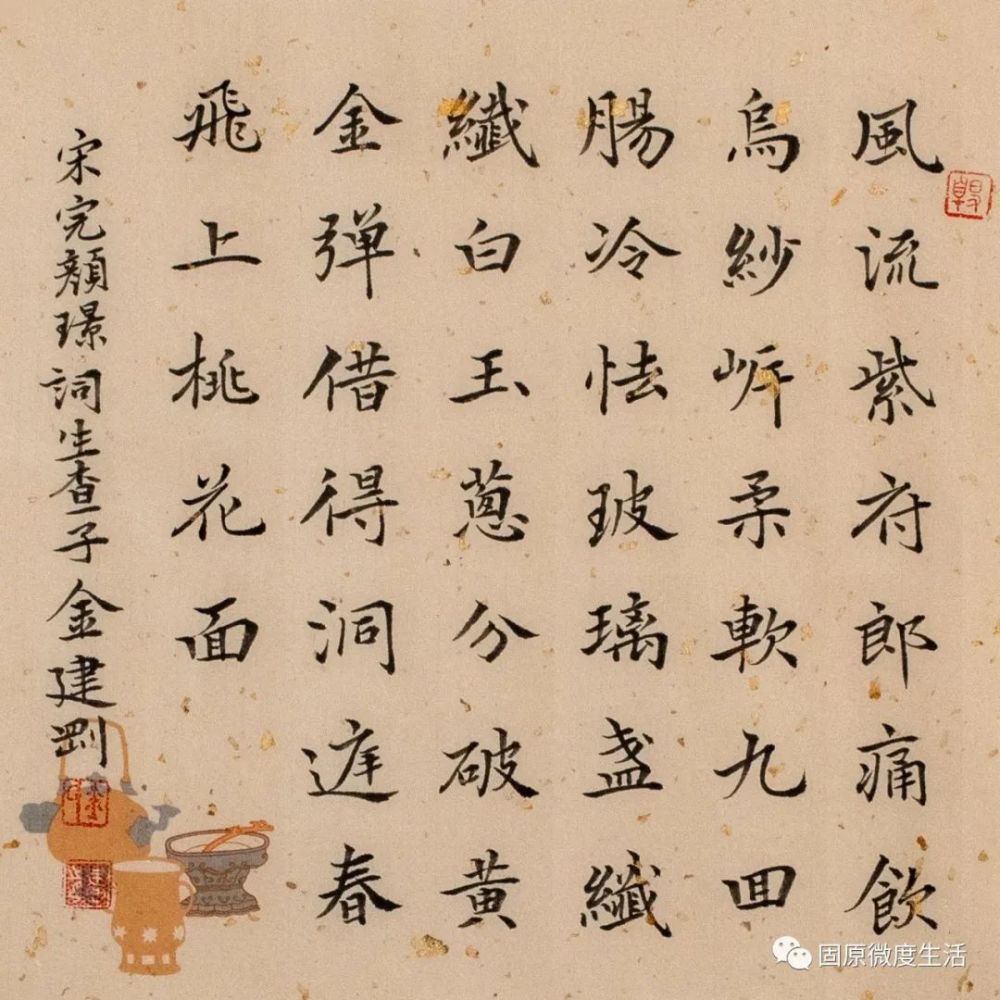 風流紫府郎痛飲
烏紗岸柔軟九回
腸冷怯玻璃盞纖
纖白玉蔥分破黄
金弹借得洞庭春
飛上桃花面
宋完顏璟詞生查子金建剛
固原微度生活